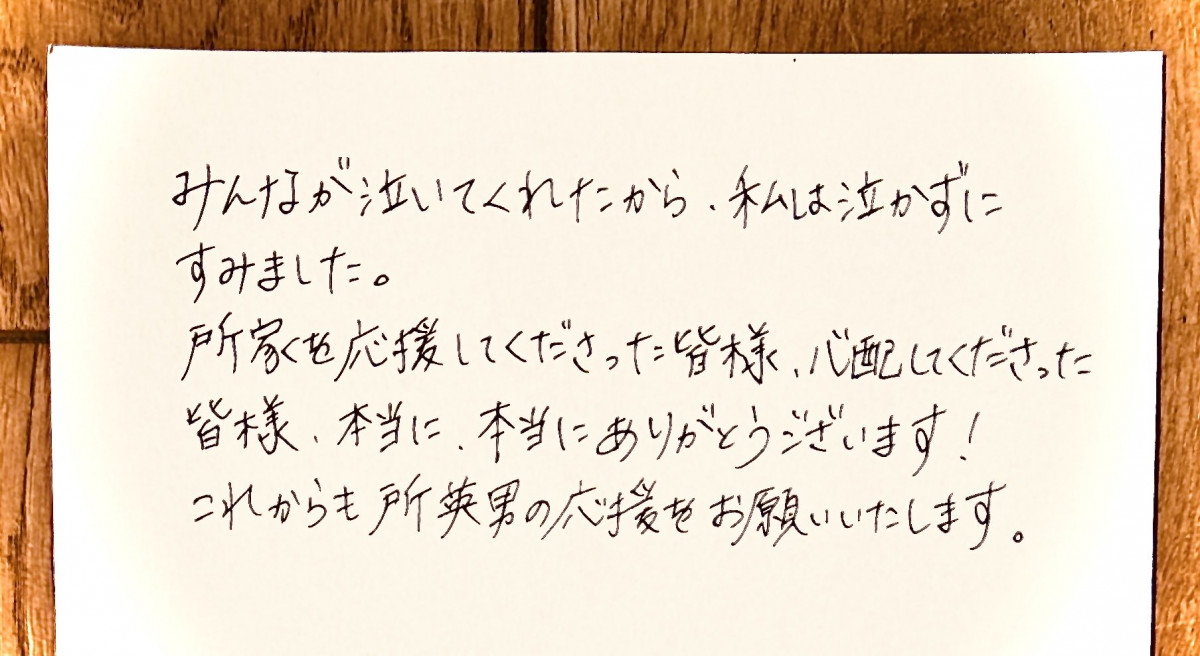 みんなが泣いてくれたから、私は泣かずに
すみました。
所家くを応援してくださった皆様、心配してくださった
皆様、本当に、本当にありがとうございます！
これからも所英男の応援をお願いいたします。